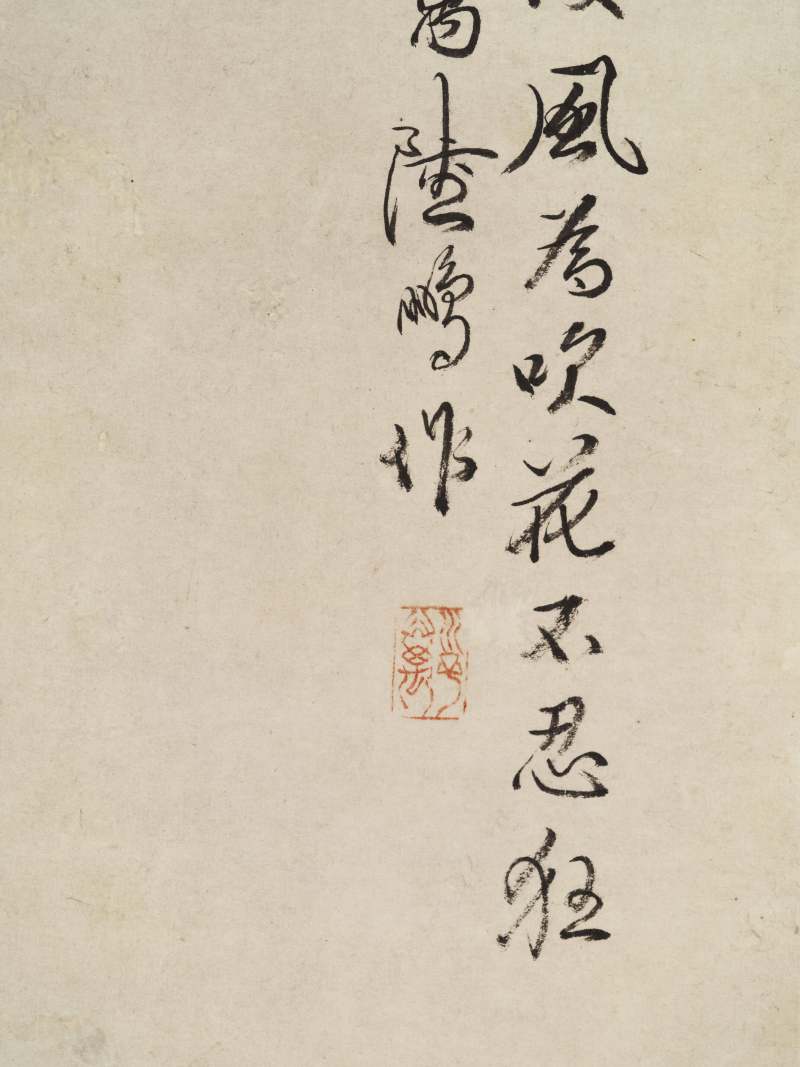 風為吹花不忍狂
陸鵬作